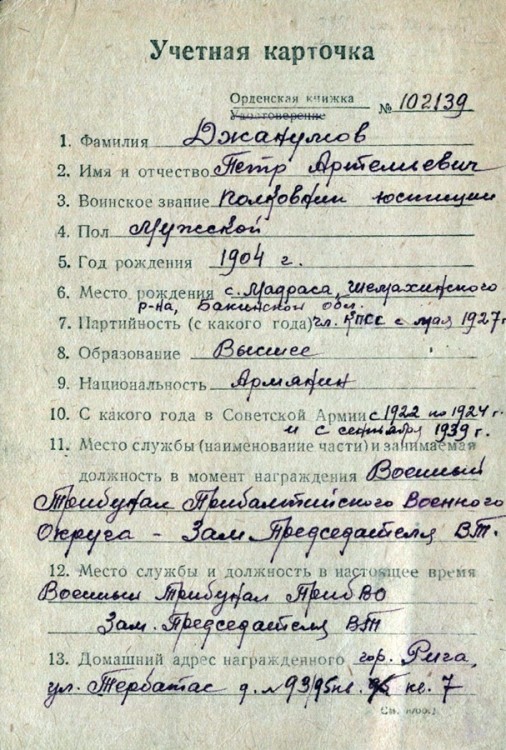 Учетная карточка
Орденская книжка
Удостоверение № 102139
1. Фамилия Джанумов
2. Имя и отчество Петр Артемьевич
3. Воинское звание Полковник юстиции
4. Пол Мужской
5. Год рождения 1904 г.
6. Место рождения с. Мадраса, Шемахинского
р-на, Бакинской обл.
7. Партийность (с какого года) чл. КПСС с мая 1927г
8. Образование Высшее
9. Национальность Армянин
10. С какого года в Советской Армии с 1922 по 1924 г.
и с сентября 1939 г.
11. Место службы (наименование части) и занимаемая
должность в момент награждения Военный
Трибунал Прибалтийского Военного
Округа - Зам. Председателя ВТ.
12. Место службы и должность в настоящее время
Военный Трибунал ПрибВО
Зам. Председателя ВТ
13. Домашний адрес награжденного гор. Рига,
ул. Тербатас д. № 93/95 кв. 7